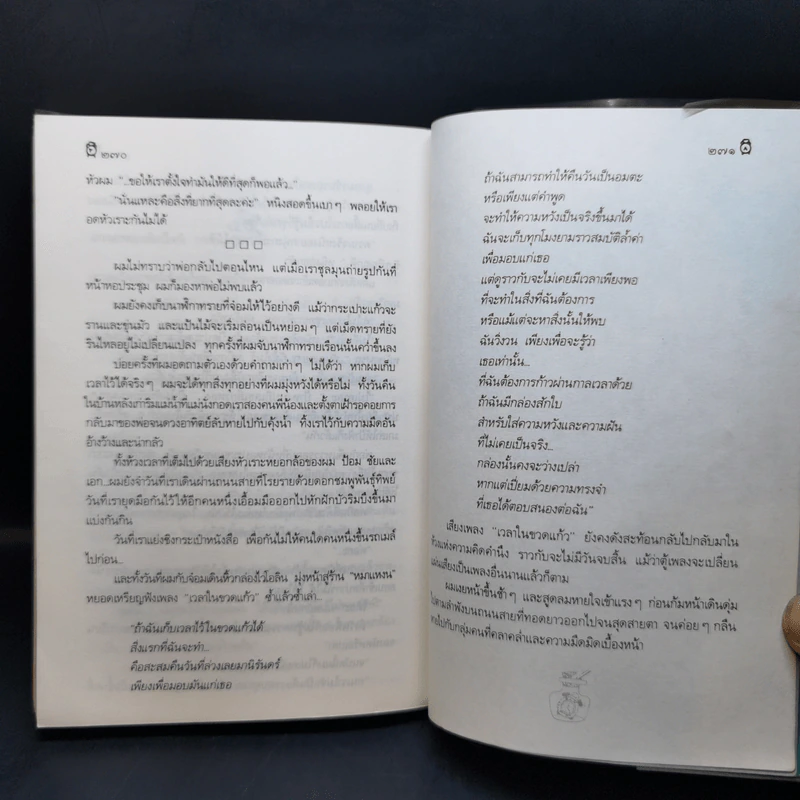 ๒๗๐
หัวผม "..ขอให้เราตั้งใจทำมันให้ดีที่สุดก็พอแล้ว.."
"นั่นแหละคือสิ่งที่ยากที่สุดละค่ะ" หนิงสอดขึ้นเบาๆ พลอยให้เรา
อดหัวเราะกันไม่ได้
ผมไม่ทราบว่าพ่อกลับไปตอนไหน แต่เมื่อเราชุลมุนถ่ายรูปกันที่
หน้าหอประชุม ผมก็มองหาพ่อไม่พบแล้ว
ผมยังคงเก็บนาฬิกาทรายที่จ้อมให้ไว้อย่างดี แม้ว่ากระเปาะแก้วจะ
รานและขุ่นมัว และแป้นไม้จะเริ่มล่อนเป็นหย่อมๆ แต่เม็ดทรายที่ยัง
รินไหลอยู่ไม่เปลี่ยนแปลง ทุกครั้งที่ผมจับนาฬิกาทรายเรือนนั้นคว่ำขึ้นลง
บ่อยครั้งที่ผมอดถามตัวเองด้วยคำถามเก่าๆ ไม่ได้ว่า หากผมเก็บ
เวลาไว้ได้จริงๆ ผมจะได้ทุกสิ่งทุกอย่างที่ผมมุ่งหวังได้หรือไม่ ทั้งวันคืน
ในบ้านหลังเก่าริมแม่น้ำที่แม่นั่งกอดเราสองคนพี่น้องและตั้งตาเฝ้ารอคอยการ
กลับมาของพ่อจนดวงอาทิตย์ลับหายไปกับคุ้งน้ำ ทิ้งเราไว้กับความมืดอัน
อ้างว้างและน่ากลัว
ทั้งห้วงเวลาที่เต็มไปด้วยเสียงหัวเราะหยอกล้อของผม ป้อม ชัยและ
เอก...ผมยังจำวันที่เราเดินผ่านถนนสายที่โรยรายด้วยดอกชมพูพันธุ์ทิพย์
วันที่เรายุดมือกันไว้ให้อีกคนหนึ่งเอื้อมมือออกไปหักฝักบัวริมบึงขึ้นมา
แบ่งกันกิน
วันที่เราแย่งชิงกระเป๋าหนังสือ เพื่อกันไม่ให้คนใดคนหนึ่งขึ้นรถเมล์
ไปก่อน...
และทั้งวันที่ผมกับจ้อมเดินหิ้วกล่องไวโอลิน มุ่งหน้าสู่ร้าน "หมแหงน"
หยอดเหรียญฟังเพลง "เวลาในขวดแก้ว" ซ้ำแล้วซ้ำเล่า...
"ถ้าฉันเก็บเวลาไว้ในขวดแก้วได้
สิ่งแรกที่ฉันจะทำ...
คือสะสมคืนวันที่ล่วงเลยมานิรันดร์
เพียงเพื่อมอบมันแก่เธอ
๒๗๑
ถ้าฉันสามารถทำให้คืนวันเป็นอมตะ
หรือเพียงแต่คำพูด
จะทำให้ความหวังเป็นจริงขึ้นมาได้
ฉันจะเก็บทุกโมงยามราวสมบัติล้ำค่า
เพื่อมอบแก่เธอ
แต่ดูราวกับจะไม่เคยมีเวลาเพียงพอ
ที่จะทำในสิ่งที่ฉันต้องการ
หรือแม้แต่จะหาสิ่งนั้นให้พบ
ฉันวิงวน เพียงเพื่อจะรู้ว่า
เธอเท่านั้น...
ที่ฉันต้องการก้าวผ่านกาลเวลาด้วย
ถ้าฉันมีกล่องสักใบ
สำหรับใส่ความหวังและความฝัน
ที่ไม่เคยเป็นจริง...
กล่องนั้นคงจะว่างเปล่า
หากแต่เปี่ยมด้วยความทรงจำ
ที่เธอได้ตอบสนองต่อฉัน"
เสียงเพลง "เวลาในขวดแก้ว" ยังคงดังสะท้อนกลับไปกลับมาใน
ห้วงแห่งความคิดคำนึง ราวกับจะไม่มีวันจบสิ้น แม้ว่าตู้เพลงจะเปลี่ยน
แผ่นเสียงเป็นเพลงอื่นนานแล้วก็ตาม
ผมเงยหน้าขึ้นช้าๆ และสูดลมหายใจเข้าแรงๆ ก่อนก้มหน้าเดินดุ่ม
ไปตามลำพังบนถนนสายที่ทอดยาวออกไปจนสุดสายตา จนค่อยๆ กลืน
หายไปกับกลุ่มคนที่คลาคล่ำและความมืดมิดเบื้องหน้า